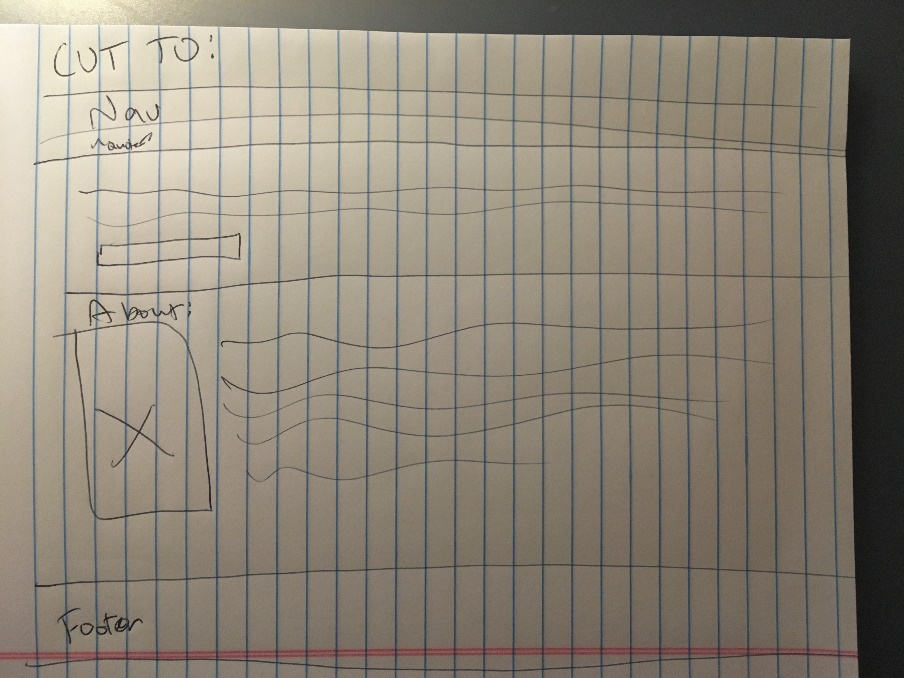 CUT TO:
Nav
About:
Footer